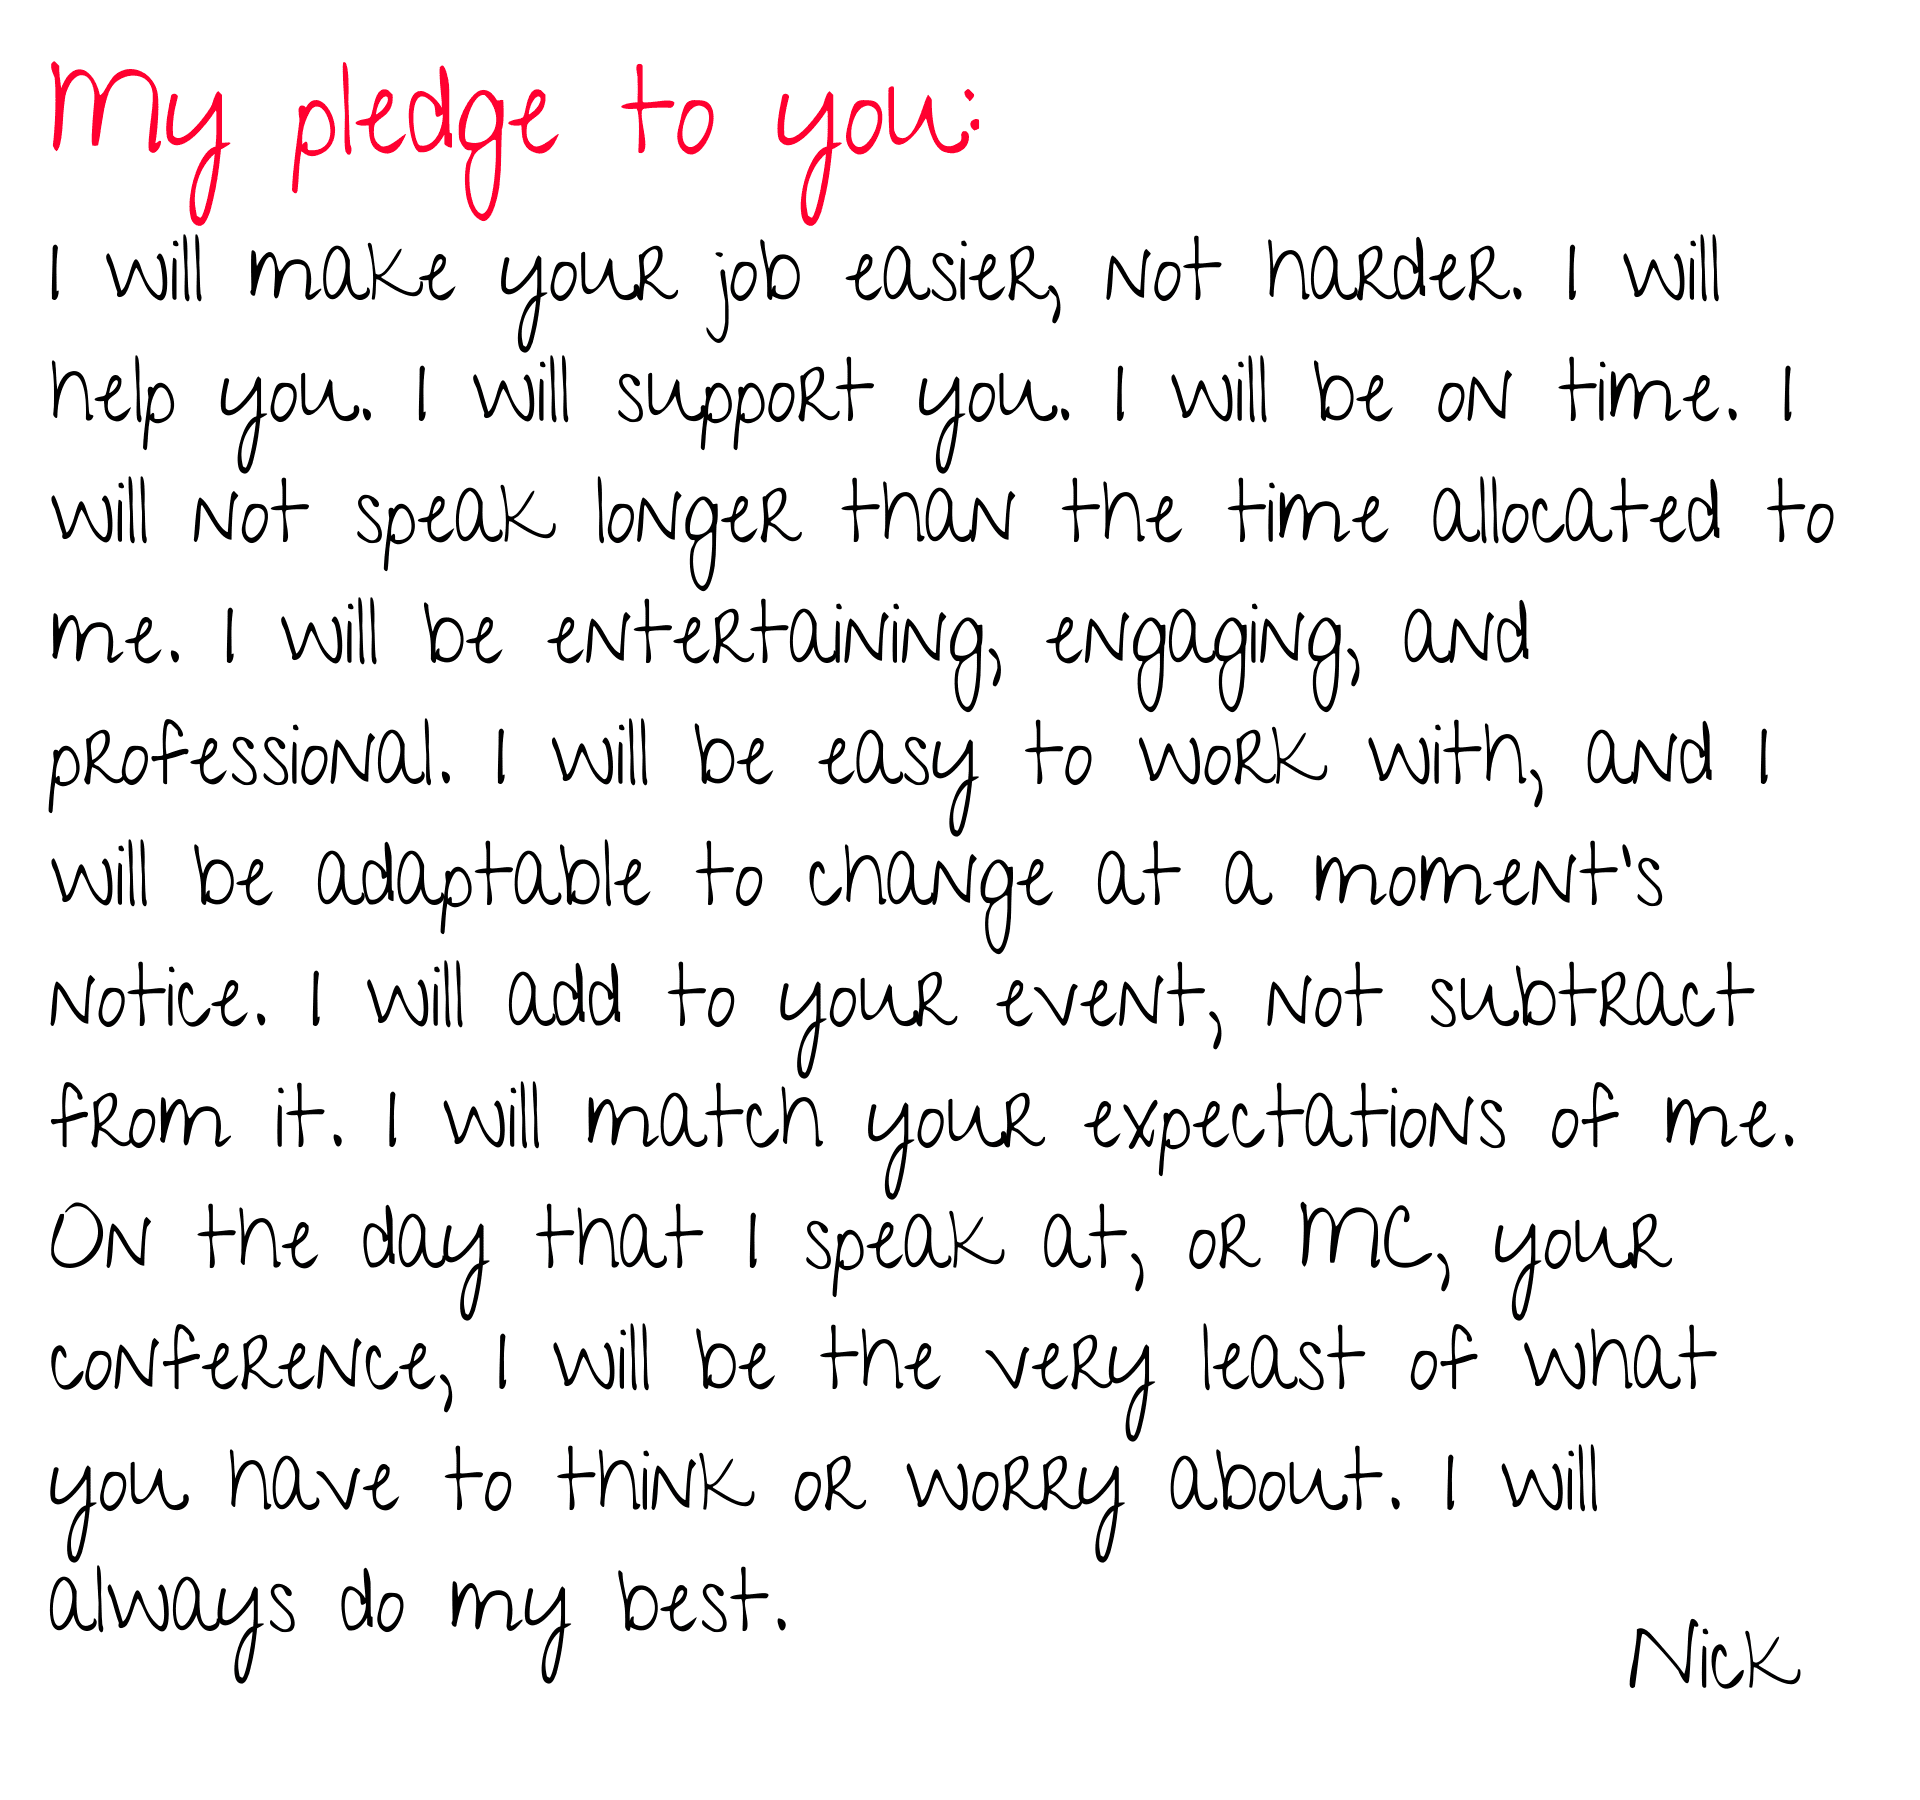 My pledge to you:
I will make your job easier, not harder. I will
help you. I will support you. I will be on time. I
will not speak longer than the time allocated to
me. I will be entertaining, engaging, and
professional. I will be easy to work with, and I
will be adaptable to change at a moment's
notice. I will add to your event, not subtract
from it. I will match your expectations of me.
On the day that I speak at, or MC, your
conference, I will be the very least of what
you have to think or worry about. I will
always do my best.
Nick